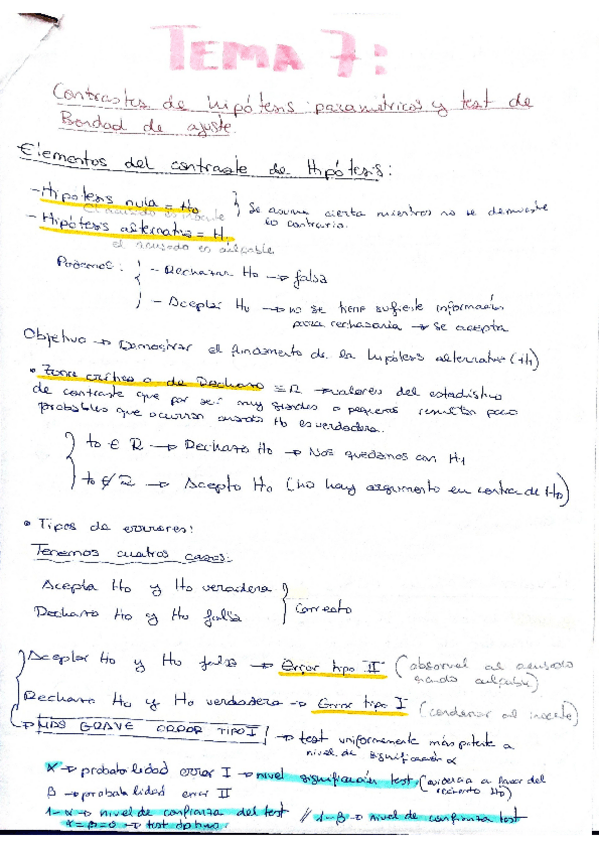 TEMA 7:
Contrastes de hipótesis paramétricos y test de
Bondad de ajuste.
Elementos del contraste de Hipótesis:
- Hipótesis nula = Ho } Se asume cierta mientras no se demuestre
lo contrario.
- Hipótesis alternativa = H1
el acusado es culpable
Podemos: { - Rechazar Ho → falsa
- Aceptar Ho → no se tiene suficiente información
para rechazarla → se acepta
Objetivo → Demostrar el fundamento de la hipótesis alternativa (H1)
• Zona crítica o de Rechazo = R → valores del estadístico
de contraste que por ser muy grandes o pequeños resultan poco
probables que ocurran cuando Ho es verdadera.
to ∈ R → Rechazo Ho → Nos quedamos con H1
to ∉ R → Acepto Ho (no hay argumento en contra de Ho)
• Tipos de errores:
Tenemos cuatros casos:
Acepta Ho y Ho verdadera
Rechazo Ho y Ho falsa } Correcto
Aceptar Ho y Ho falsa → Error tipo II (absolver al acusado
siendo culpable)
Rechazo Ho y Ho verdadera → Error tipo I (condenar al inocente)
→ MÁS GRAVE ERROR TIPO I → test uniformemente más potente a
nivel de significación α
α → probabilidad error I → nivel significación test (evidencia a favor del
rechazo Ho)
β → probabilidad error II
1-α → nivel de confianza del test // 1-β → nivel de confianza test
α = β = 0 → test óptimo.